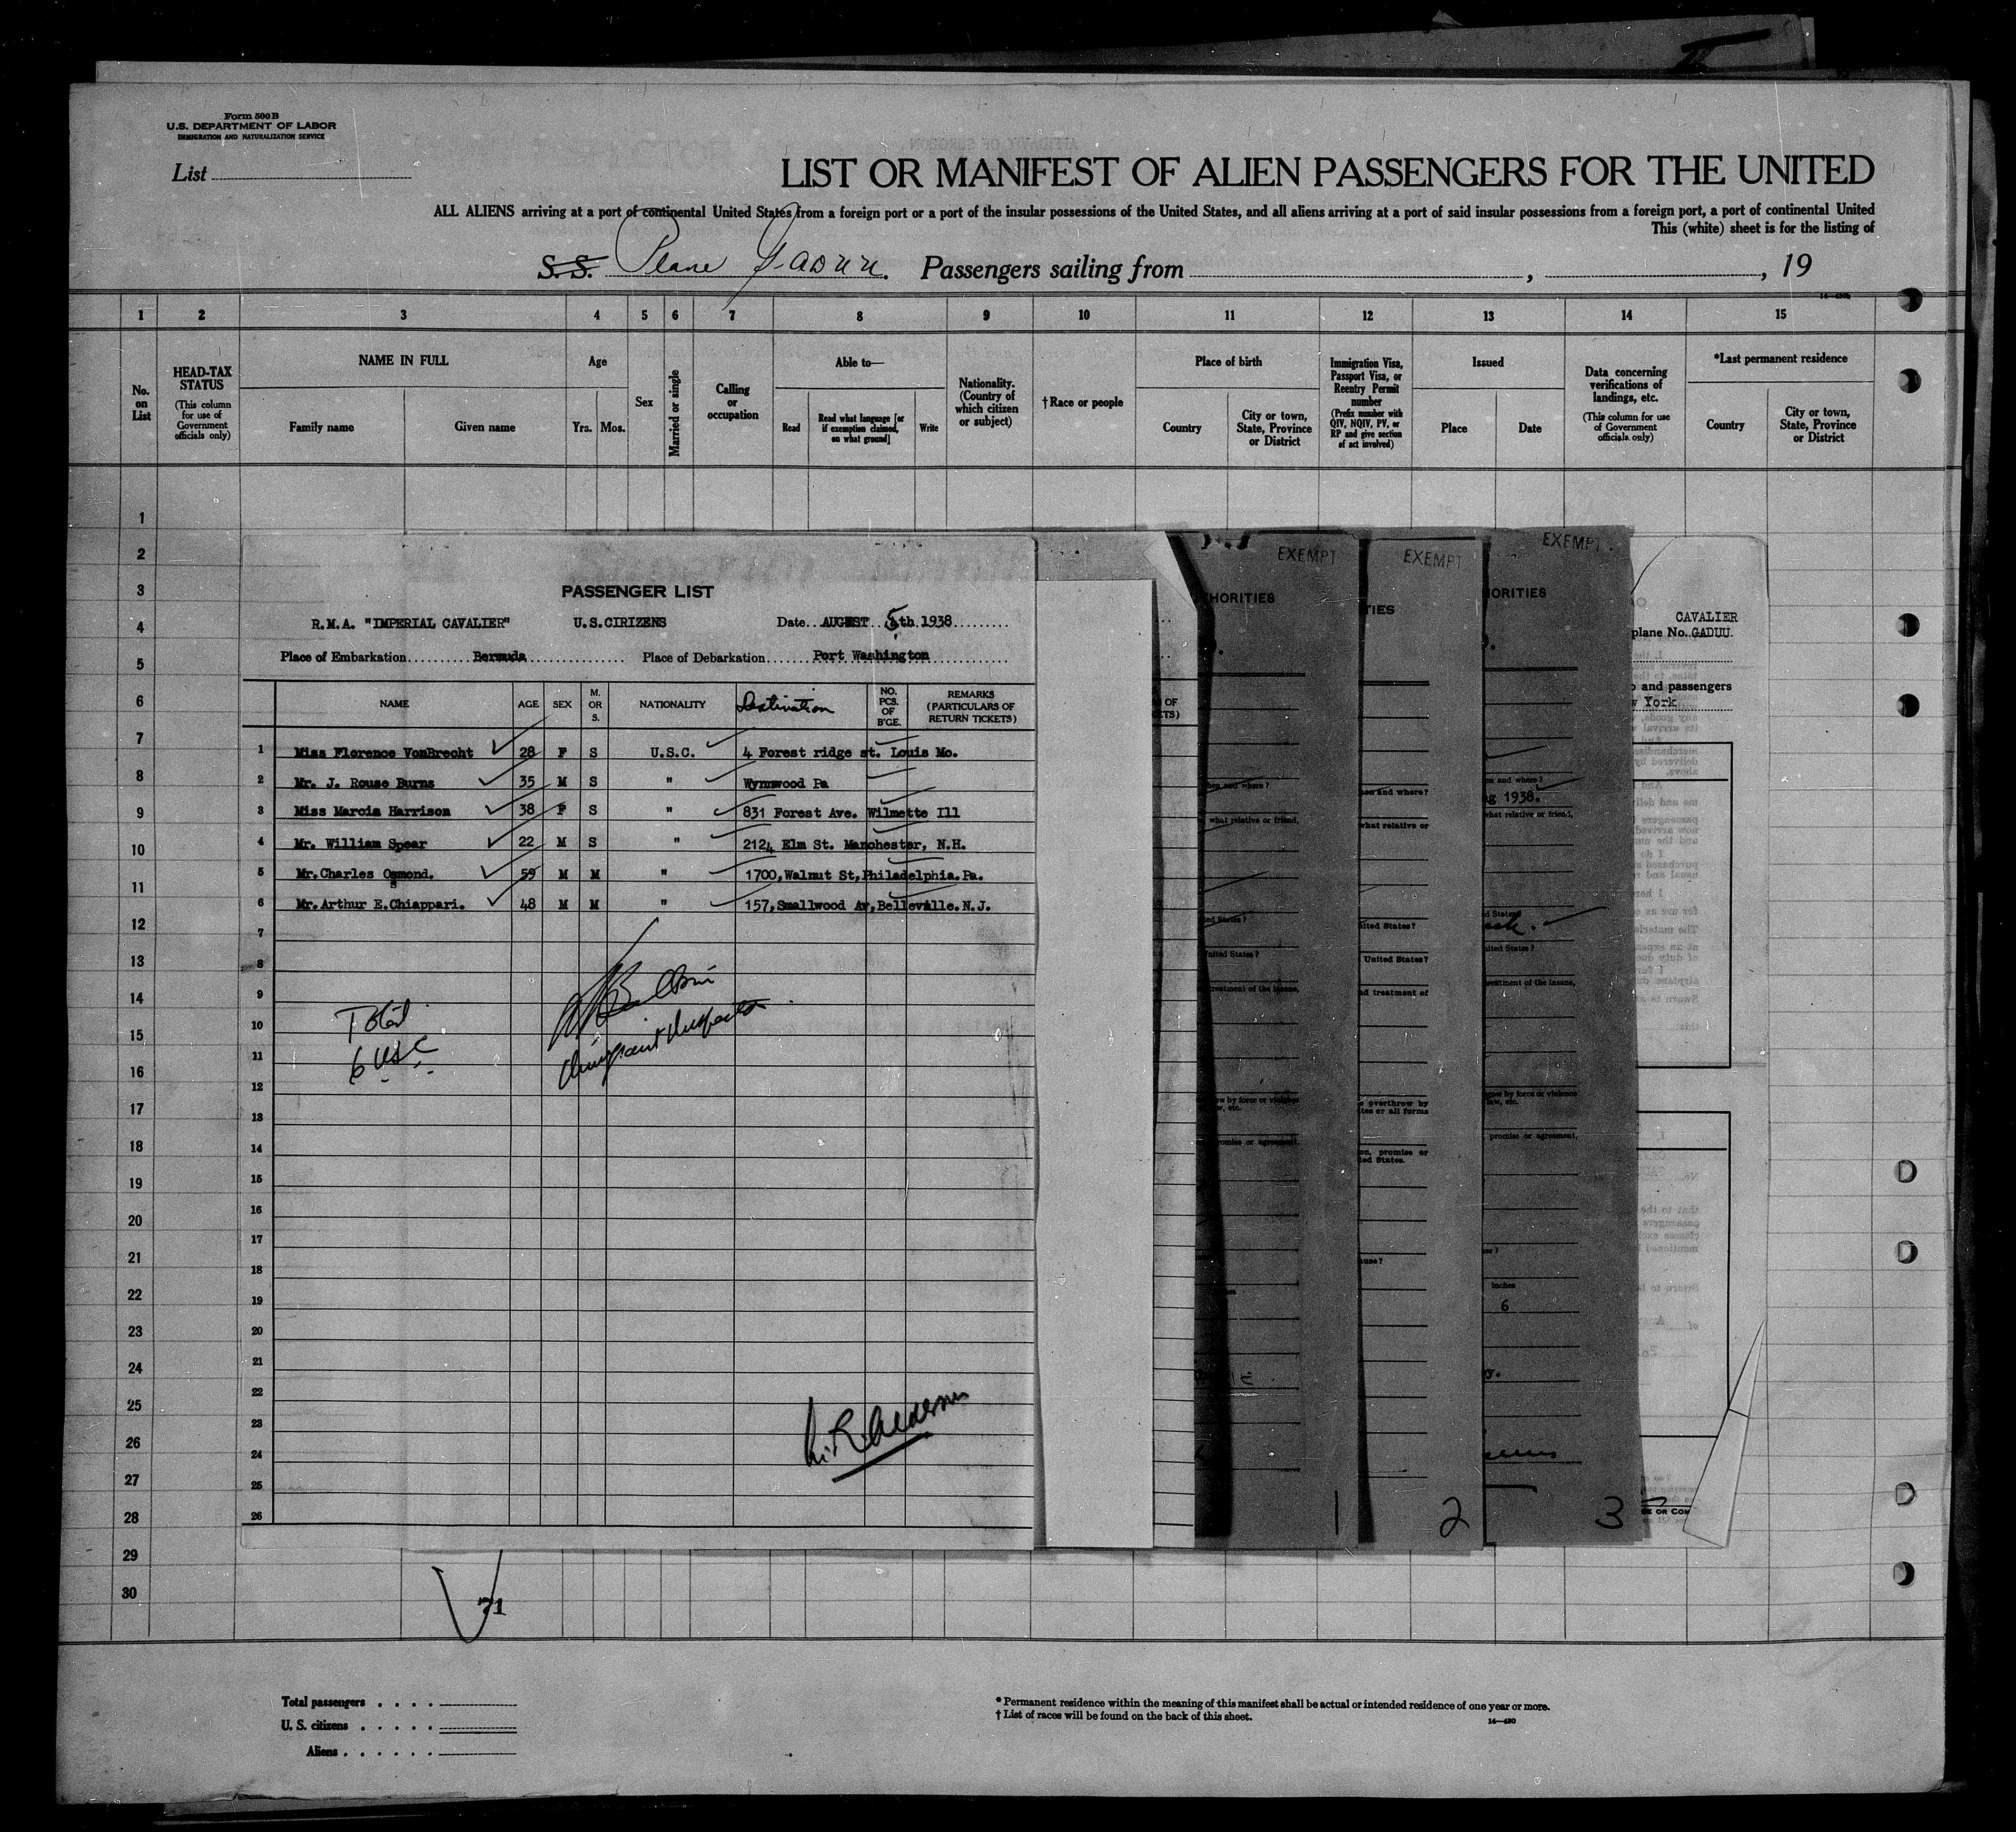 Form 500 B
U.S. DEPARTMENT OF LABOR
IMMIGRATION AND NATURALIZATION SERVICE
List
LIST OR MANIFEST OF ALIEN PASSENGERS FOR THE UNITED
ALL ALIENS arriving at a port of continental United States from a foreign port or a port of the insular possessions of the United States, and all aliens arriving at a port of said insular possessions from a foreign port, a port of continental United
This (white) sheet is for the listing of
S.S. Plane Passengers sailing from , , 19
1 2 3 4 5 6 7 8 9 10 11 12 13 14 15
No. on List
HEAD-TAX STATUS (This column for use of Government officials only)
NAME IN FULL
Family name Given name
Age
Yrs. Mos.
Sex
Married or single
Calling or occupation
Able to—
Read Read what language [or if exemption claimed, on what ground] Write
Nationality. (Country of which citizen or subject)
†Race or people
Place of birth
Country City or town, State, Province or District
Immigration Visa, Passport Visa, or Reentry Permit number (Prefix number with QIV, NQIV, PV, or RP and give section of act involved)
Issued
Place Date
Data concerning verifications of landings, etc. (This column for use of Government officials only)
*Last permanent residence
Country City or town, State, Province or District
1
2
3
4
5
6
7
8
9
10
11
12
13
14
15
16
17
18
19
20
21
22
23
24
25
26
27
28
29
30
PASSENGER LIST
R.M.A. "IMPERIAL CAVALIER" U.S.CIRIZENS Date AUGUST 5th 1938
Place of Embarkation Bermuda Place of Debarkation Port Washington
NAME AGE SEX M. OR S. NATIONALITY Destination NO. PCS. OF B'GE. REMARKS (PARTICULARS OF RETURN TICKETS)
1 Miss Florence VonBrecht 28 F S U.S.C. 4 Forest ridge st. Louis Mo.
2 Mr. J. Rouse Burns 35 M S " Wynnwood Pa
3 Miss Marcia Harrison 38 F S " 831 Forest Ave. Wilmette Ill
4 Mr. William Spear 22 M S " 2124 Elm St. Manchester, N.H.
5 Mr.Charles Osmond. 59 M M " 1700,Walnut St,Philadelphia.Pa.
6 Mr.Arthur E.Chiappari. 48 M M " 157,Smallwood Av,Belleville.N.J.
7
8
9
10
11
12
13
14
15
16
17
18
19
20
21
22
23
24
25
26
Total
6 USC
Immigrant Inspector
EXEMPT
HORITIES
when and where?
what relative or friend,
United States?
treatment of the insane,
1
EXEMPT
TIES
and where?
what relative or
United States?
United States?
treatment of
overthrow by
or all forms
promise or
States.
2
EXEMPT
ORITIES
and where?
1938.
what relative or friend,
United States?
treatment of the insane,
by force or violence
law, etc.
promise or agreement,
inches
6
3
CAVALIER
plane No. GADUU.
and passengers
York
71
Total passengers
U. S. citizens
Aliens
* Permanent residence within the meaning of this manifest shall be actual or intended residence of one year or more.
† List of races will be found on the back of this sheet.
14—480